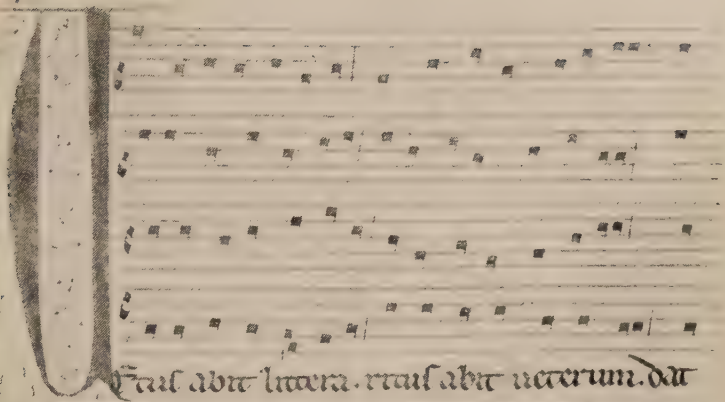 Vetus abit littera. ritus abit ueterum. dat